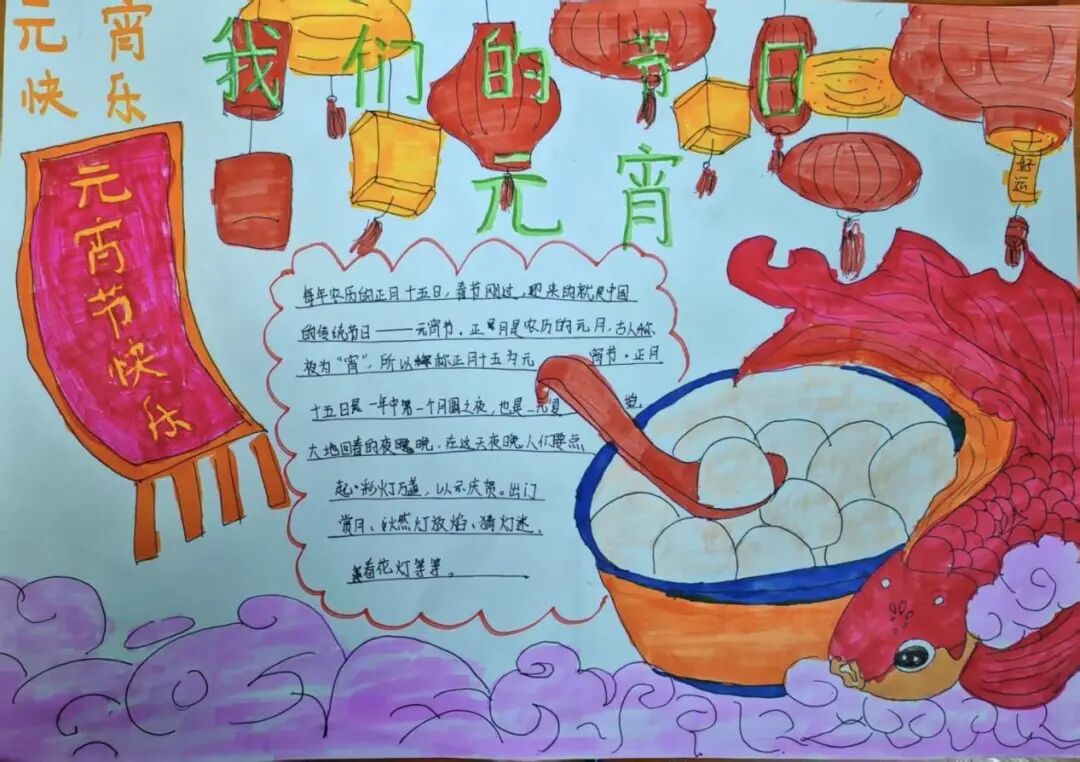 元宵
快乐
我们的节日
元宵
元宵节快乐
好运
每年农历的正月十五日,春节刚过,迎来的就是中国
的传统节日——元宵节。正月是农历的元月,古人称
夜为“宵”,所以称正月十五为元宵节。正月
十五日是一年中第一个月圆之夜,也是一元复
大地回春的夜晚,在这天夜晚人们要点
起彩灯万盏,以示庆贺。出门
赏月、燃灯放焰、猜灯迷、
看花灯等等。